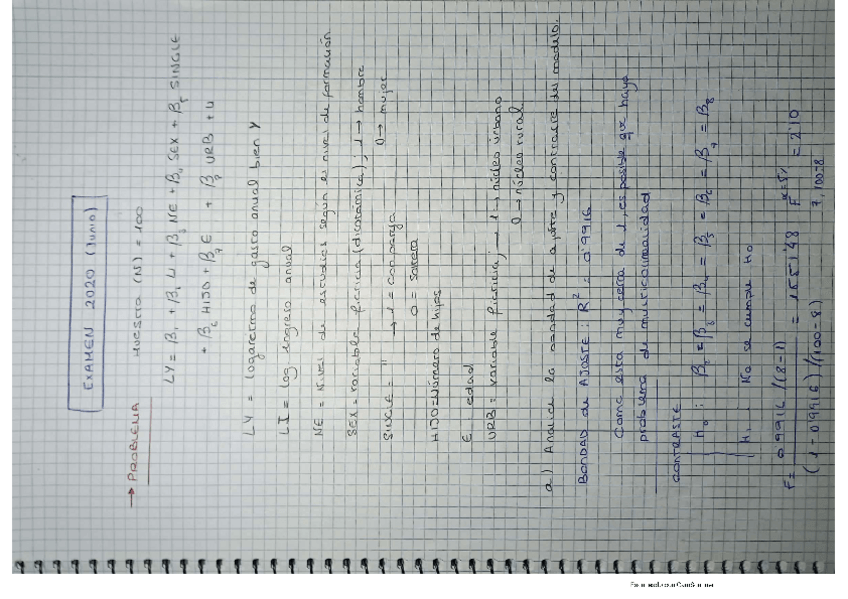 EXAMEN 2020 (Junio)
→ PROBLEMA MUESTRA (N) = 100
LY = β1 + β2 LI + β3 NE + β4 SEX + β5 SINGLE
+ β6 HIJO + β7 E + β8 URB + u
LY = Logaritmo de gasto anual bien Y
LI = log ingreso anual
NE = Nivel de estudios según el nivel de formación
SEX = variable ficticia (dicotómica); 1 → hombre
0 → mujer
SINGLE = " → 1 = con pareja
0 = soltero
HIJO = Número de hijos
E edad
URB = variable ficticia; → 1 → núcleo urbano
0 → núcleo rural
a) Analice la bondad de ajuste y contraste del modelo.
BONDAD de AJUSTE: R² = 0'9916
Como está muy cerca de 1, es posible que haya
problema de multicolinealidad
CONTRASTE
H0 : β2 = β3 = β4 = β5 = β6 = β7 = β8
H1 : No se cumple H0
F = 0'9916 / (8-1) = 1551'48 F α=5% = 2'10
(1 - 0'9916) / (100-8) 7, 100-8